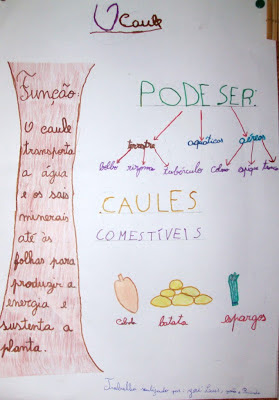 O Caule
Função:
O caule
transporta
a água
e os sais
minerais
até às
folhas para
produzir a
energia e
sustenta a
planta.
PODE SER:
terrestre aquáticos aéreos
bolbo rizoma tubérculo Colmo espique tronco
CAULES
COMESTÍVEIS
batata espargos
Trabalho realizado por: José